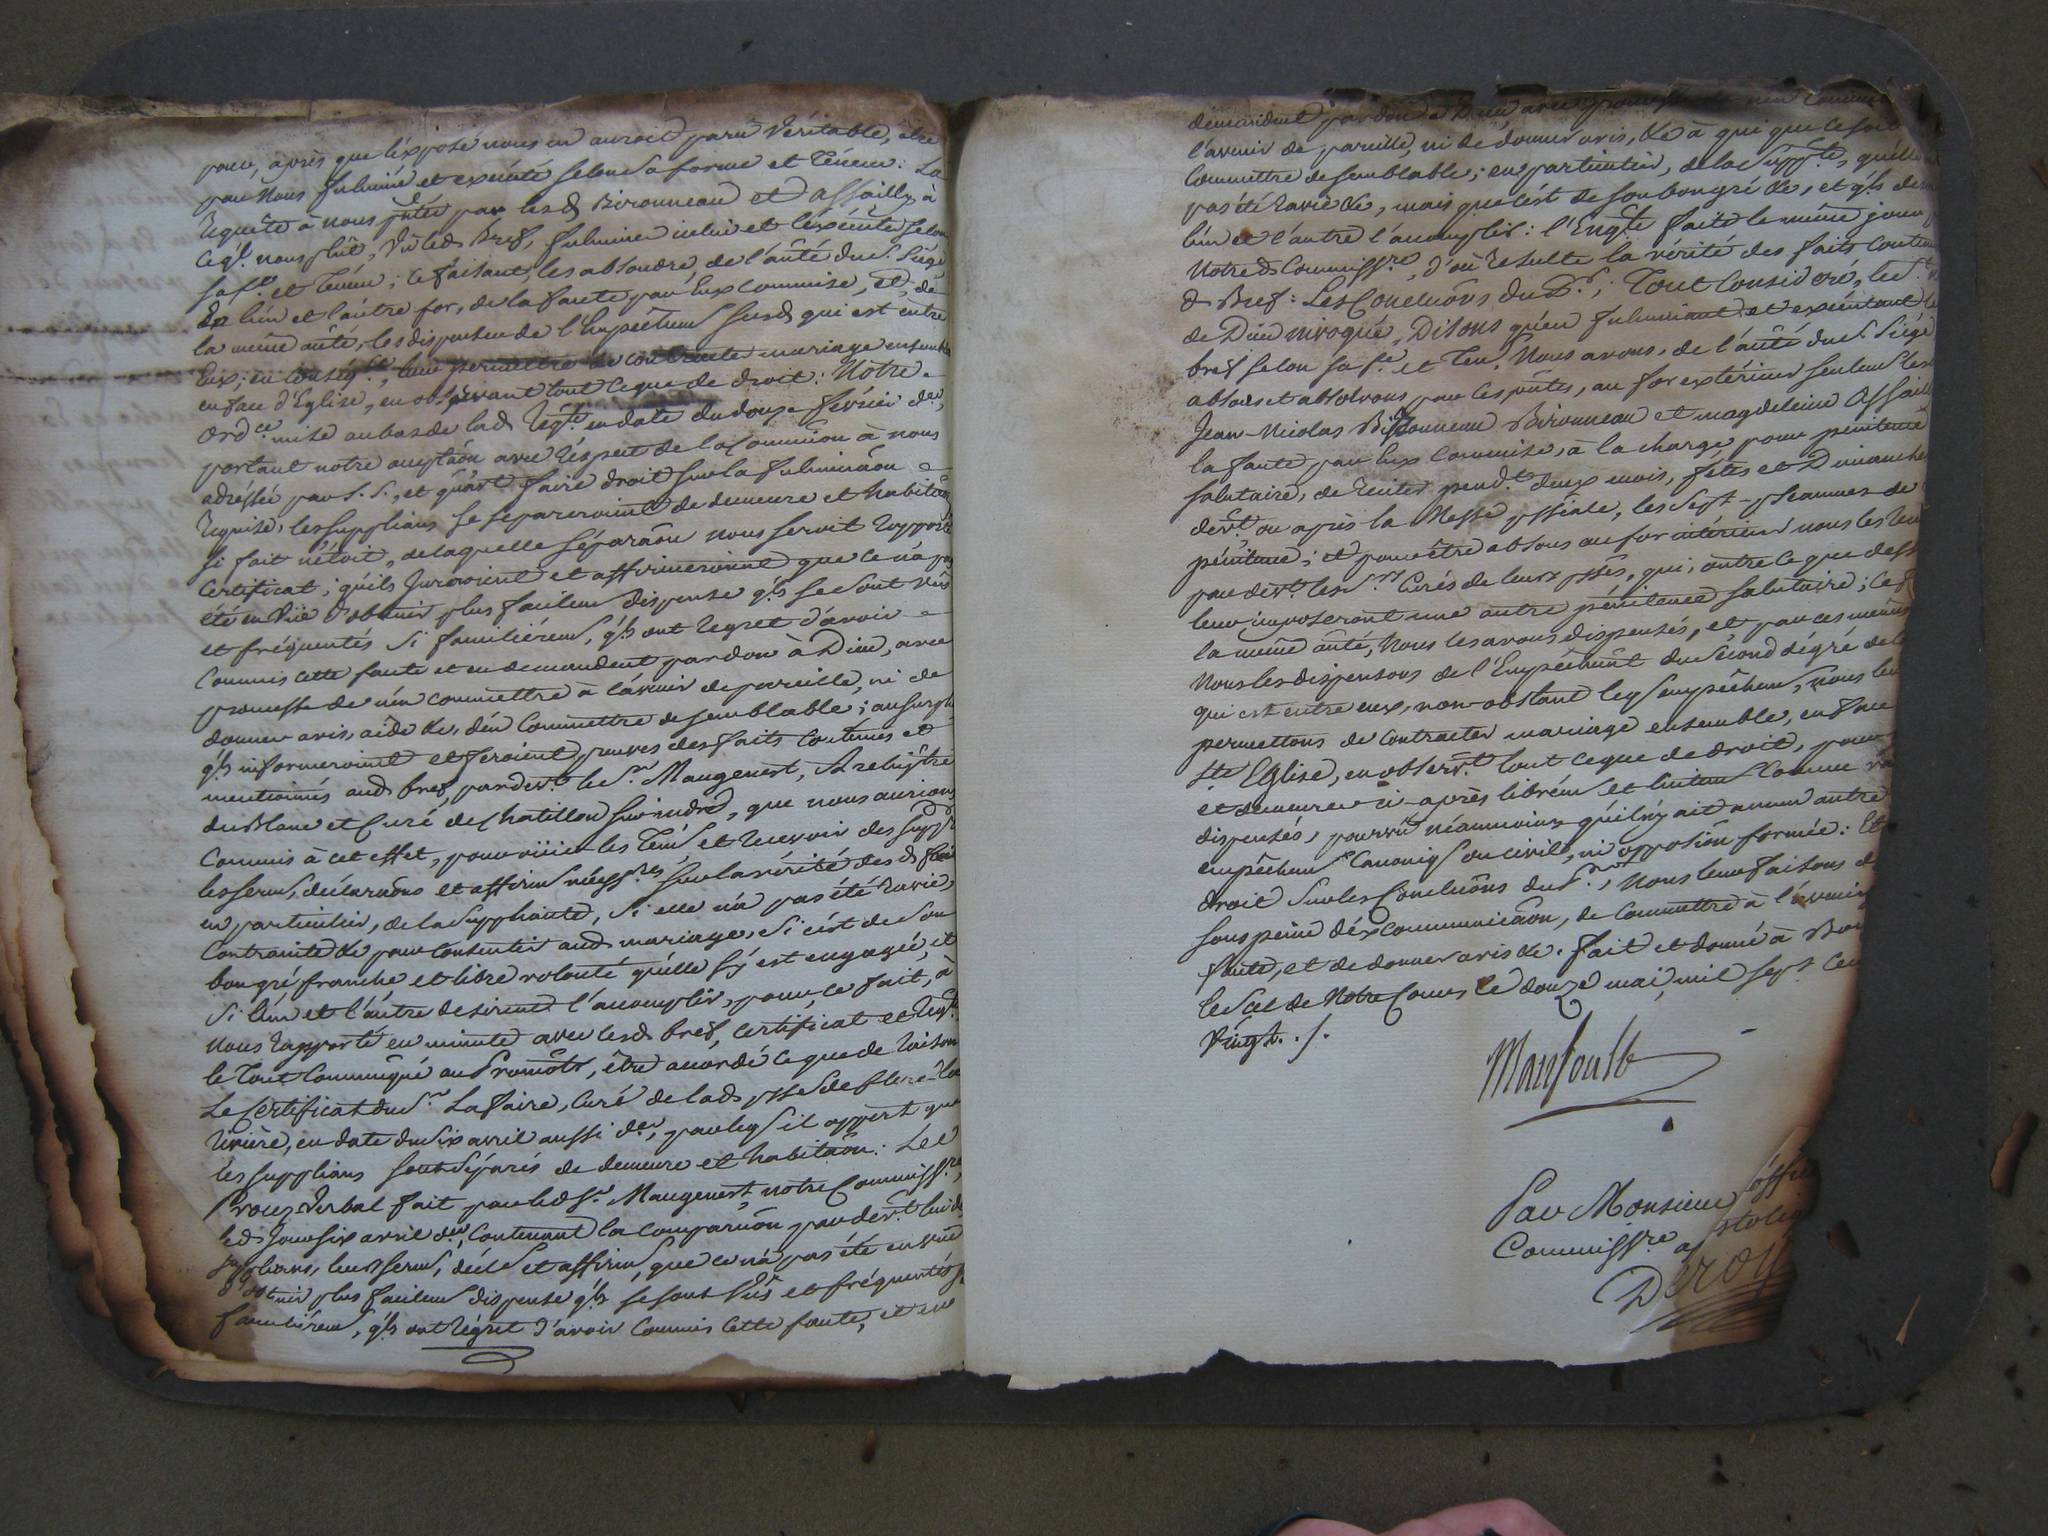 pour, après que l'éxposé nous en auroit paru Véritable, être
par Nous fulminé et exécuté selon sa forme et Téneur: La
Requête à nous pntée par lesd. Bironneau et Assailly, à
ceql. nous plût, Vû led. Bref, fulminer icelui et l'exécuter selon
sa fe. et Teneur; ce faisant, les absoudre, de l'auté du St. Siége
en l'un et l'autre for, de la faute par Eux commise, et, de
la même auté, les dispenser de l'Empêchemt susd. qui est entre
Eux; en conséqce, leur permettre de contracter mariage ensemble
en face d'Eglise, en observant tout ce que de droit: Notre
ordce. mise au bas de lad. reqte. en date du douze février der,
portant notre acceptaôn avec réspect de la Commiôn à nous
adréssée par S. S., et qu'avt. faire droit sur la fulminaôn
requise, les supplians se sépareroient de demeure et habitaôn
si fait n'étoit, de laquelle séparaôn nous seroit rapporté
certificat; qu'ils jureroient et affirmeroient que ce n'a pas
été en vüe d'obtenir plus facilemt dispense qls. se sont vus
et fréquentés si familiéremt, qls. ont regret d'avoir
Commis cette faute et en demandent pardon à Dieu, avec
promesse de n'en commettre à l'avenir de pareille, ni de
donner avis, aide &c. d'en Commettre de semblable; au surplus
qls. informeroient et feroient preuves des faits contenus et
mentionnés aud. bref, pardevt. le Sr. Maugenest, Archiprêtre
du Blanc et Curé de Chatillon sur indre, que nous aurions
Commis à cet effet, pour ouir les Tems et recevoir des suppls.
les serms, déclaraôns et affirms nécessres. sur la vérité desd. faits
en particulier, de la suppliante, si elle n'a pas été ravie,
contrainte &c pour consentir aud. mariage, si c'est de son
bon gré, franche et libre volonté qu'elle s'y est engagée, et
si l'un et l'autre desirent l'accomplir, pour, ce fait, à
nous rapporté en minute avec lesd. bref, certificat et reqte.
le Tout communiqué au Promotr, être accordé ce que de raison
Le Certificat du Sr. Lafaire, Curé de lad. psse de Fleré-la
rivière, en date du six avril aussi der, par leql il appert que
les supplians sont séparés de demeure et habitaôn: Le
Procez Verbal fait par led. Sr. Maugenest, notre Commissre,
led. jour six avril der, contenant la comparuôn pardevt. lui des
supplians, leurs serms, décls et affirms, que ce n'a pas été en vüe
d'obtenir plus facilemt dispense qls. se sont vus et fréquentés si
familiéremt, qls. ont régret d'avoir commis cette faute, et en
demandent pardon à Dieu, avec n'en commettre
l'avenir de pareille, ni de donner avis, &c à qui que ce soit
commettre de semblable; en particulier, de la Supplte, qu'elle
pas été ravie &c, mais que c'est de son bon gré &c, et qls. desirent
l'un et l'autre l'accomplir: l'Enqte. faite le même jour
Notred. Commissre, d'où résulte la vérité des faits contenus
d. Bref: Les Concluôns du Pr.; Tout Considéré, le St.
de Dieu invoqué, Disons qu'en fulminant et exécutant le
bref selon sa fe. et Ten., Nous avons, de l'auté du St. Siége
absous et absolvons par ces pntes, au for extérieur seulemt les
Jean-Nicolas Bironneau et Magdeleine Assailly
la faute par Eux Commise, à la charge, pour pénitence
salutaire, de réciter pendt. deux mois, fêtes et Dimanches
devt. ou après la Messe pssiale, les Sept-pseaumes de
pénitence; et pour être absous au for intérieur nous les renv
par devt. les Srs. Curés de leurs psses, qui, outre ce que dess
leur imposeront une autre pénitence salutaire; Ce f
la même auté, Nous les avons dispensés, et par ces mêmes
Nous les dispensons de l'Empêchemt du sécond dégré de
qui est entre eux, non-obstant leql empêchemt, nous leur
permettons de contracter mariage ensemble, en face
Ste. Eglise, en observt. tout ce que de droit, pour
et demeurer ci-après librémt et licitemt comme
dispensés, pourvu néanmoins qu'il n'y ait aucun autre
empêchemt Canoniq. ou civil, ni opposiôn formée: Et
droit sur les Concluôns du Pr., Nous leur faisons d
sous peine d'éxcommunicaôn, de commettre à l'avenir
faute, et de donner avis &c. fait et donné à Bou
le Scel de Notre Cour, ce douze mai, mil sept cen
Vingt ./.
Mansoult
Par Monsieur l'offi
Commissre apostoliq
Deroy